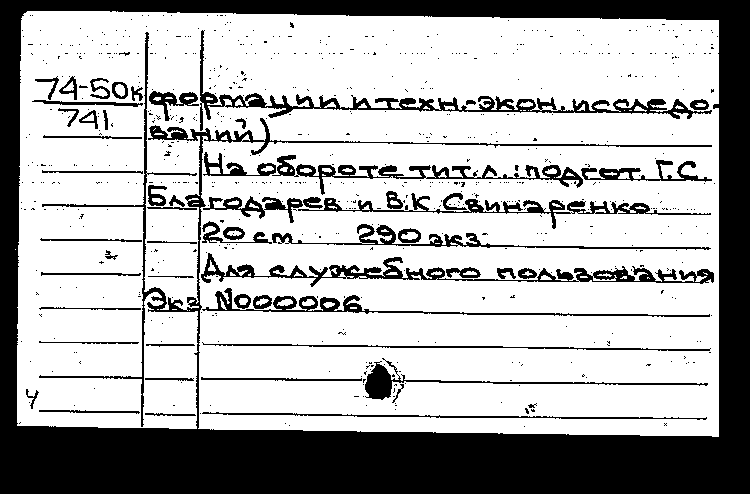 74-50к формации и техн.-экон. исследо-
741
ваний).
На обороте тит.л.: подгот. Г.С.
Благодарев и В.К. Свинаренко.
20 см. 290 экз.
Для служебного пользования
Экз. №000006.
4